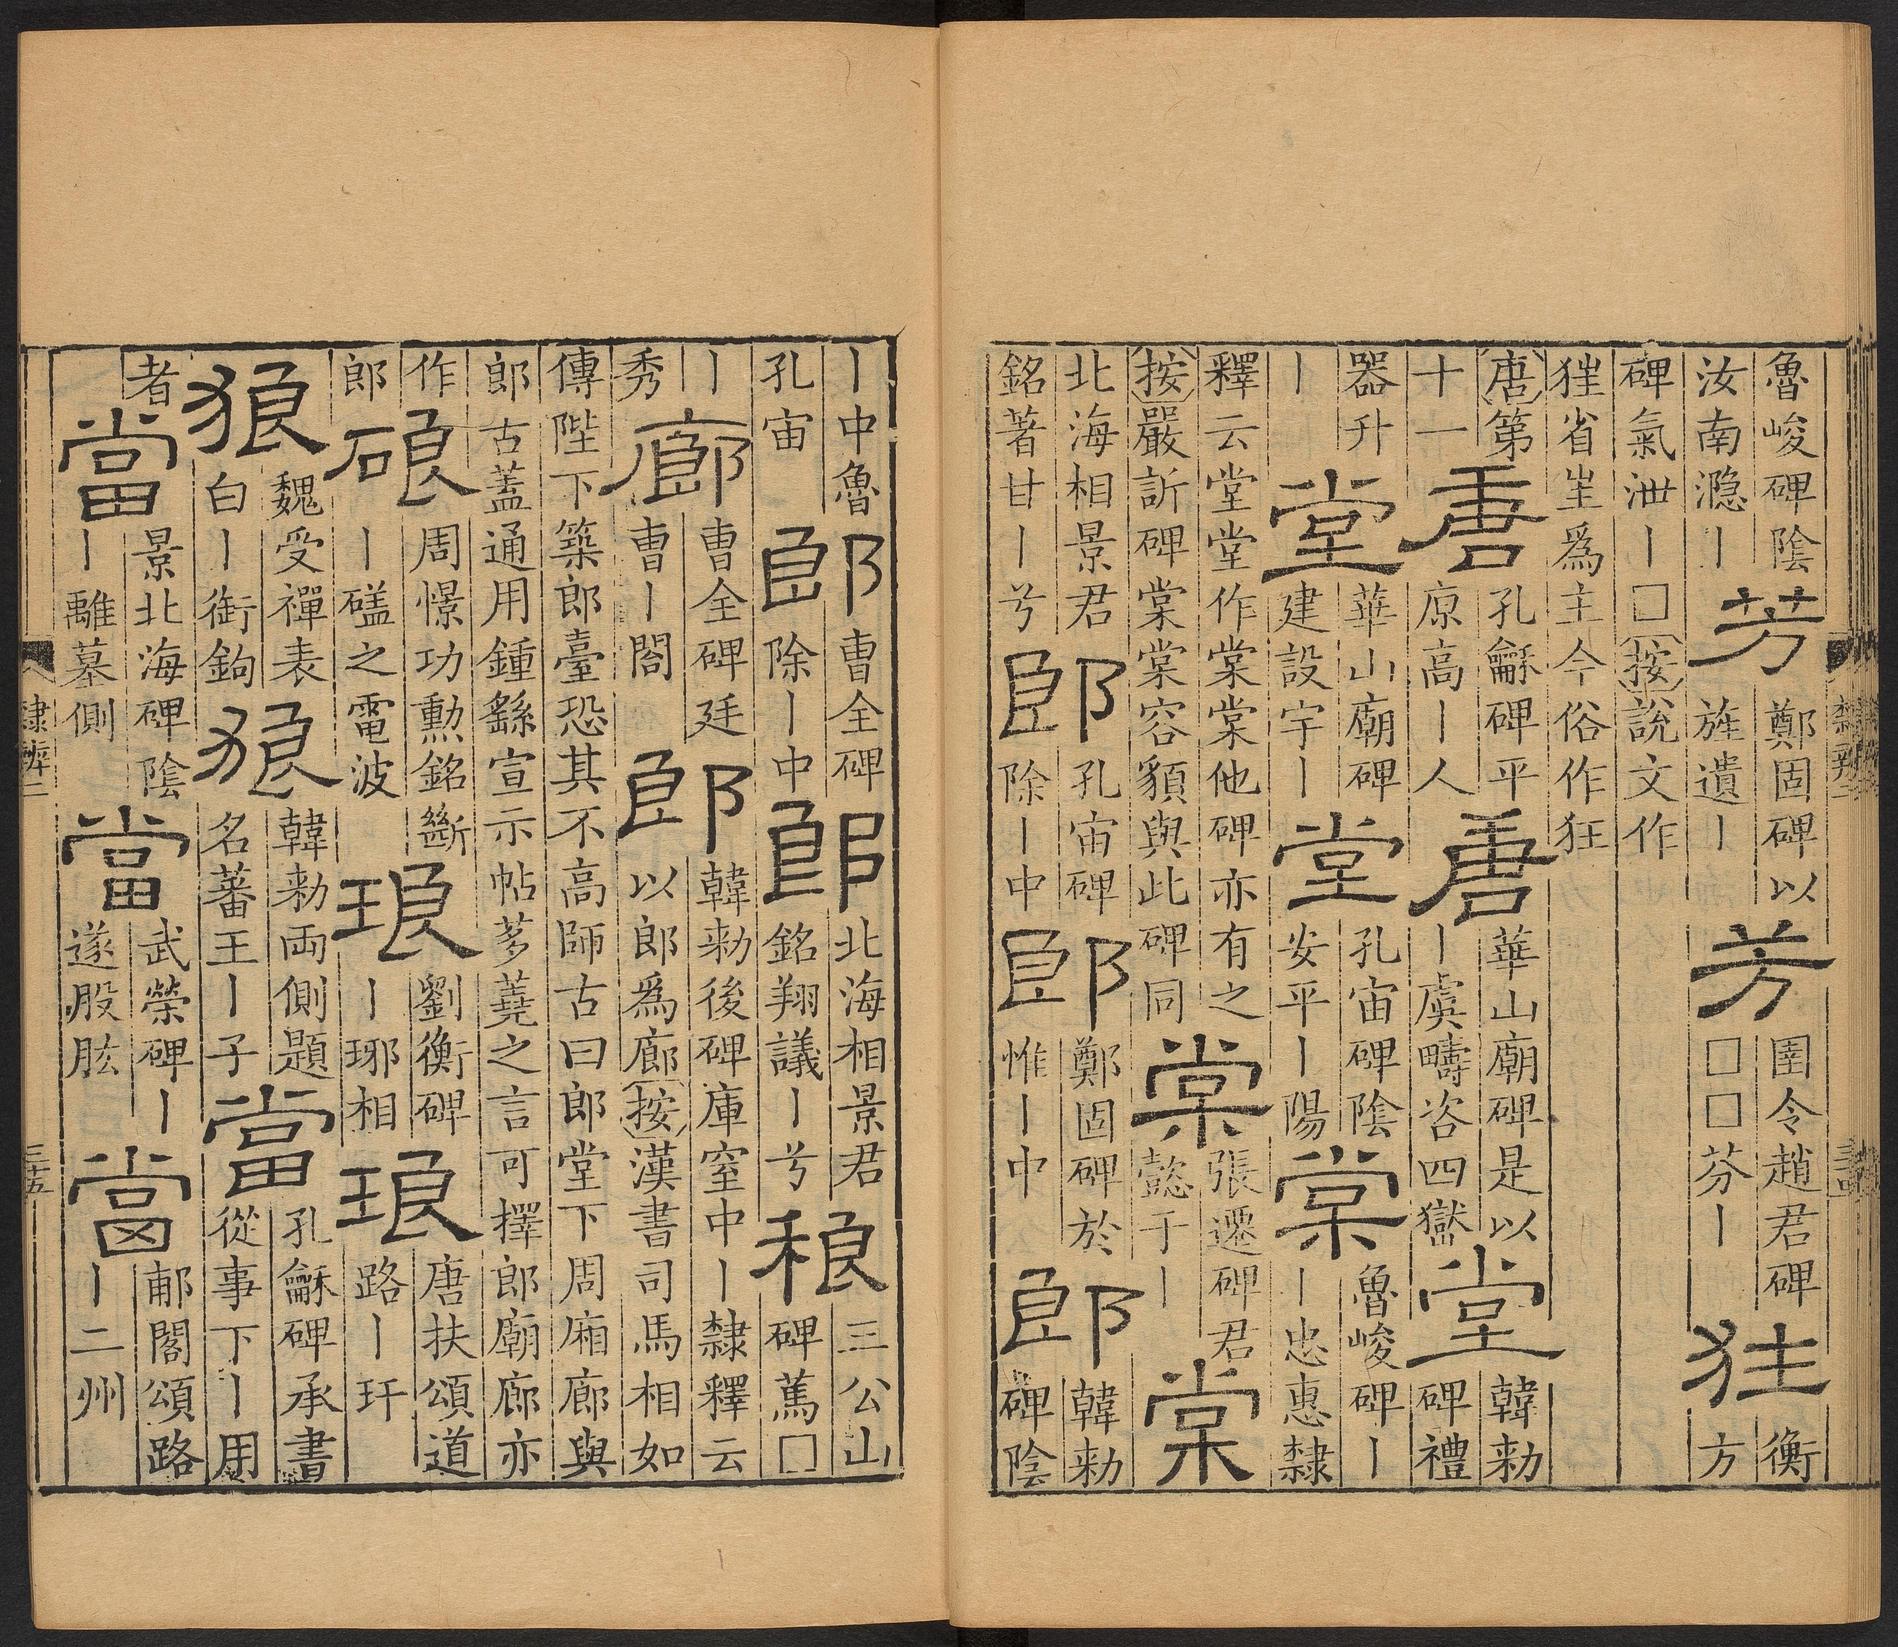 魯峻碑陰汝南濦丨芳鄭固碑以旌遺丨芳圉令趙君碑□□芬丨狂衡方
碑氣泄丨□按說文作㹵省㞷爲主今俗作狂
唐第十一唐孔龢碑平原高丨人唐華山廟碑是以丨虞疇咨四嶽堂韓勑碑禮
器升丨堂華山廟碑建設宇丨堂孔宙碑陰安平丨陽棠魯峻碑丨丨忠惠隸
釋云堂堂作棠棠他碑亦有之按嚴訢碑棠棠容額與此碑同棠張遷碑君懿于丨棠
北海相景君銘著甘丨兮郎孔宙碑除丨中郎鄭固碑於惟丨中郎韓勑碑陰
丨中魯孔宙郎曹全碑除丨中郎北海相景君銘翔議丨兮稂三公山碑蔿□
丨秀廊曹全碑廷曹丨閤郎韓勑後碑庫室中丨隸釋云以郎爲廊按漢書司馬相如
傳陛下築郎臺恐其不高師古曰郎堂下周廂廊與郎古蓋通用鍾繇宣示帖芗蕘之言可擇郎廟廊亦
作郎硠周憬功勲銘斷丨磕之電波琅劉衡碑丨琊相琅唐扶頌道路丨玕
狼魏受禪表白丨銜鉤狼韓勑両側題名蕃王丨子當孔龢碑承書從事下丨用
者當景北海碑陰丨離墓側當武榮碑丨遂股肱當郙閣頌路丨二州
隸辨二
三十五